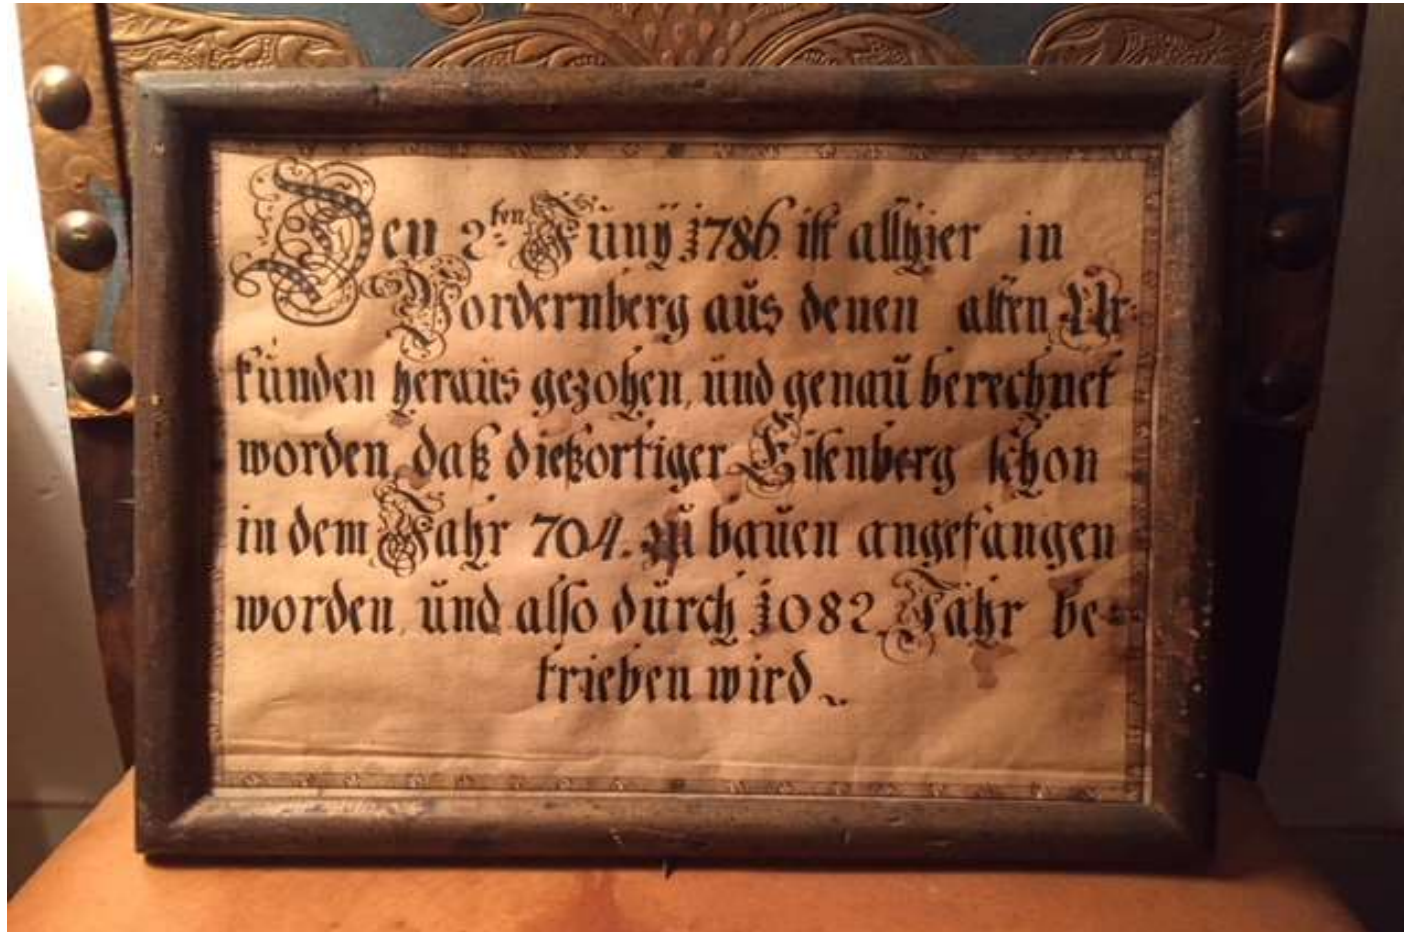 Den 2ten Junÿ 1786. ist allhier in
Vordernberg aus denen alten Ur-
kunden heraus gezohen, und genau berechnet
worden, daß dießortiger Eisenberg schon
in dem Jahr 704. zu bauen angefangen
worden, und also durch 1082 Jahr be-
trieben wird.